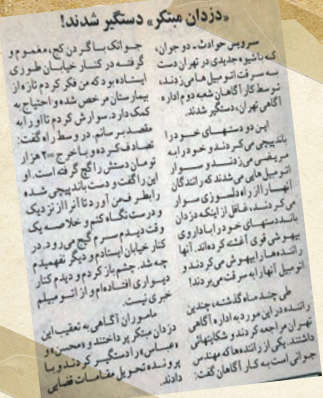 «دزدان مبتکر» دستگیر شدند!
سرویس حوادث ـ دو جوان،
که با شیوه جدیدی در تهران دست
به سرقت اتومبیل‌ها می‌زدند،
توسط کارآگاهان شعبه دوم اداره
آگاهی تهران، دستگیر شدند.
این دو دستهای خود را
باندپیچی می‌کردند و خود را به
مریضی می‌زدند و سوار
اتومبیل‌هایی می‌شدند که رانندگان
آنها را از راه دلسوزی سوار
می‌کردند، غافل از اینکه دزدان
باند دستهای خود را به داروی
بیهوشی قوی آغشته کرده‌اند. آنها
راننده‌ها را بیهوش می‌کردند و
اتومبیل آنها را به سرقت می‌بردند!
طی چند ماه گذشته، چندین
راننده در این مورد به اداره آگاهی
تهران مراجعه کردند و شکایتهائی
داشتند. یکی از راننده‌ها که مهندس
جوانی است به کارآگاهان گفت:
جوانک با گردن کج، مغموم و
گرفته در کنار خیابان طوری
ایستاده بود که من فکر کردم تازه از
بیمارستان مرخص شده و احتیاج به
کمک دارد. سوارش کردم تا او را به
مقصد برسانم. در وسط راه گفت:
تصادف کرده و با خرج ۲۰۰ هزار
تومان دستش را گچ گرفته است. او
این را گفت و دست باندپیچی شده
را بطرف من آورد تا آنرا از نزدیک
و درست نگاه کنم و خلاصه یک
وقت دیدم سرم گیج می‌رود. در
کنار خیابان ایستادم و دیگر نفهمیدم
چه شد. چشم باز کردم و دیدم کنار
دیواری افتاده‌ام و از اتومبیلم
خبری نیست.
ماموران آگاهی به تعقیب این
دزدان مبتکر پرداختند و «محسن» و
«عباس» را دستگیر کردند و با
پرونده تحویل مقامات قضایی
دادند.